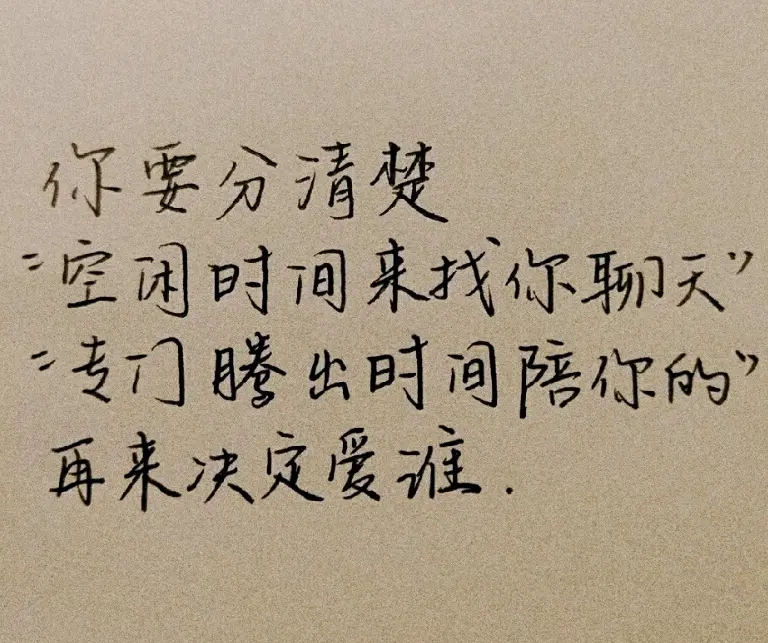 你要分清楚
"空闲时间来找你聊天"
"专门腾出时间陪你的"
再来决定爱谁.